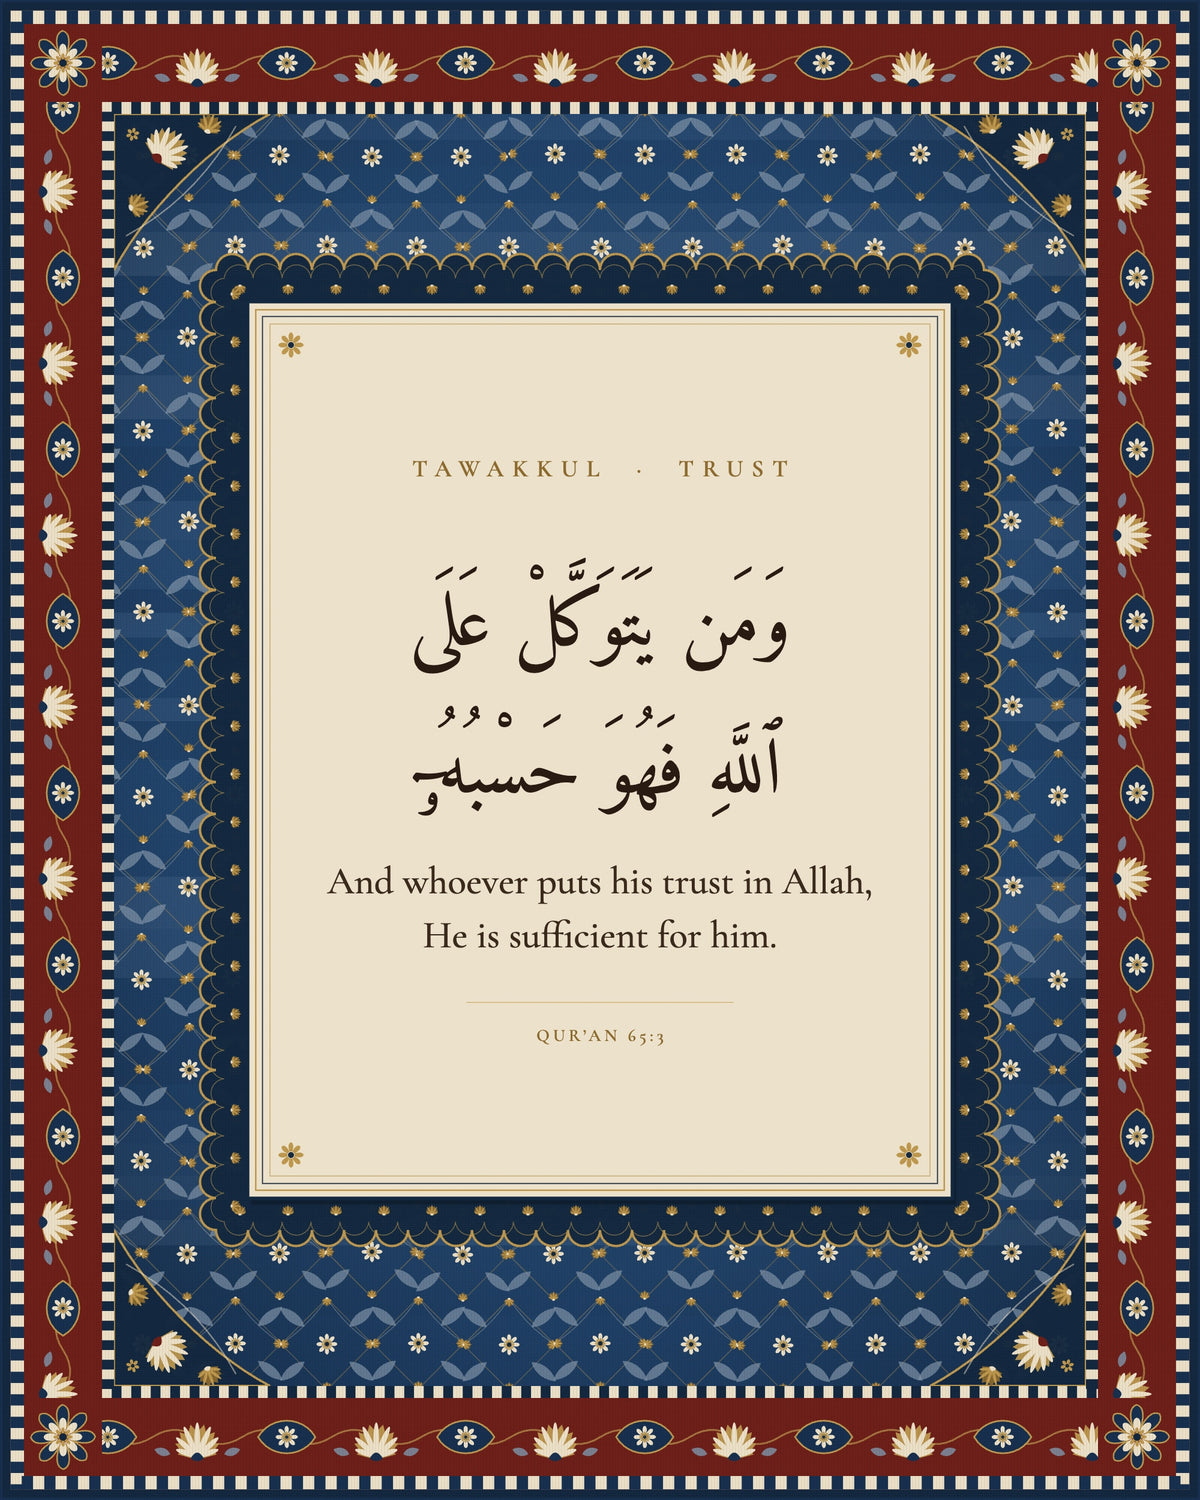 TAWAKKUL · TRUST
وَمَن يَتَوَكَّلْ عَلَى
ٱللَّهِ فَهُوَ حَسْبُهُۥ
And whoever puts his trust in Allah,
He is sufficient for him.
QUR’AN 65:3